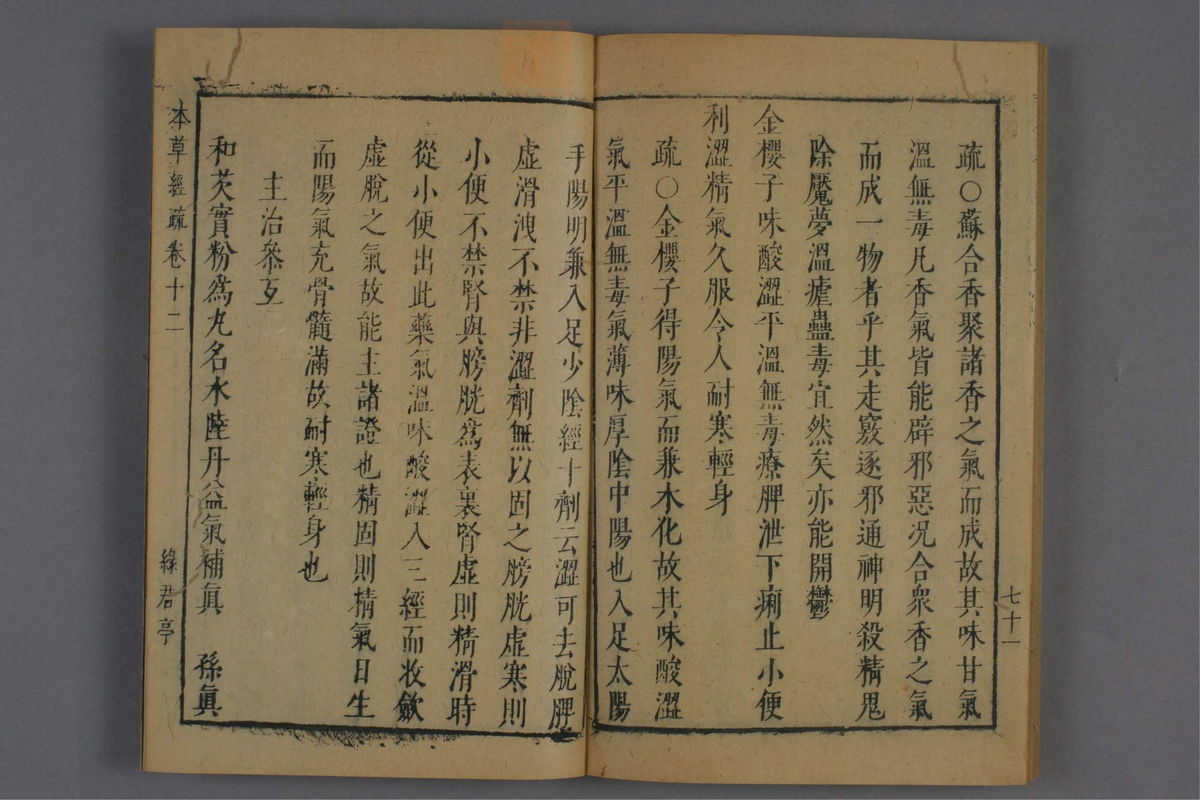 七十一
疏○蘇合香聚諸香之氣而成故其味甘氣
溫無毒凡香氣皆能辟邪惡况合衆香之氣
而成一物者乎其走竅逐邪通神明殺精鬼
除魘夢溫瘧蠱毒宜然矣亦能開鬱
金櫻子味酸澀平溫無毒療脾泄下痢止小便
利澀精氣久服令人耐寒輕身
疏○金櫻子得陽氣而兼木化故其味酸澀
氣平溫無毒氣薄味厚陰中陽也入足太陽
手陽明兼入足少陰經十劑云澀可去脫脾
虛滑洩不禁非澀劑無以固之膀胱虛寒則
小便不禁腎與膀胱爲表裏腎虛則精滑時
從小便出此藥氣溫味酸澀入三經而收斂
虛脫之氣故能主諸證也精固則精氣日生
而陽氣充骨髓滿故耐寒輕身也
主治叅互
和芡實粉爲丸名水陸丹益氣補眞　孫眞
本草經疏卷十二
綠君亭